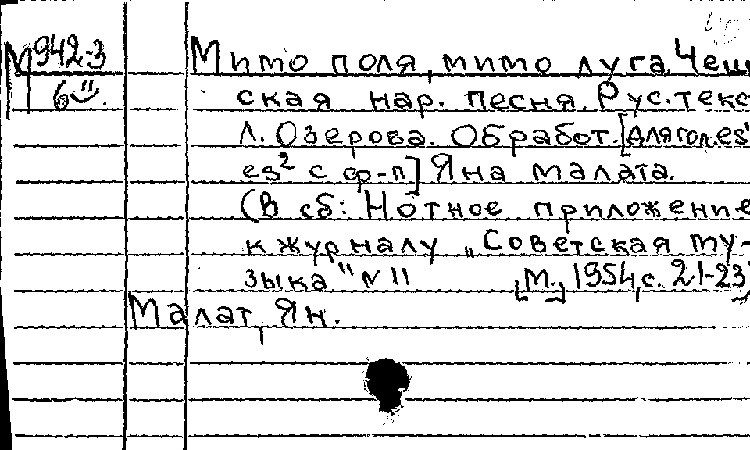 М 942-3
Мимо поля, мимо луга. Чеш
ская нар. песня. Рус. текс
Л. Озерова. Обработ. [для гол. es'
es² с ф-п] Яна Малата.
(В сб: Нотное приложение
к журналу „Советская му-
зыка" N 11 [М.], 1954, с. 21-23
Малат, Ян.